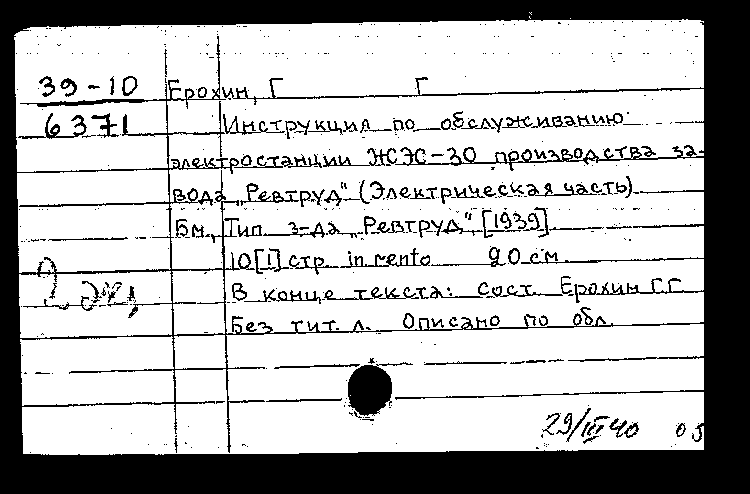 39-10 Ерохин, Г Г
6371 Инструкция по обслуживанию
электростанции ЖЭС-30 производства за-
вода „Ревтруд" (Электрическая часть)
Бм., Тип. з-да „Ревтруд", [1939]
10[1] стр. in rento 20 см.
2 экз,
В конце текста: сост. Ерохин Г.Г.
Без тит. л. Описано по обл.
29/III 40